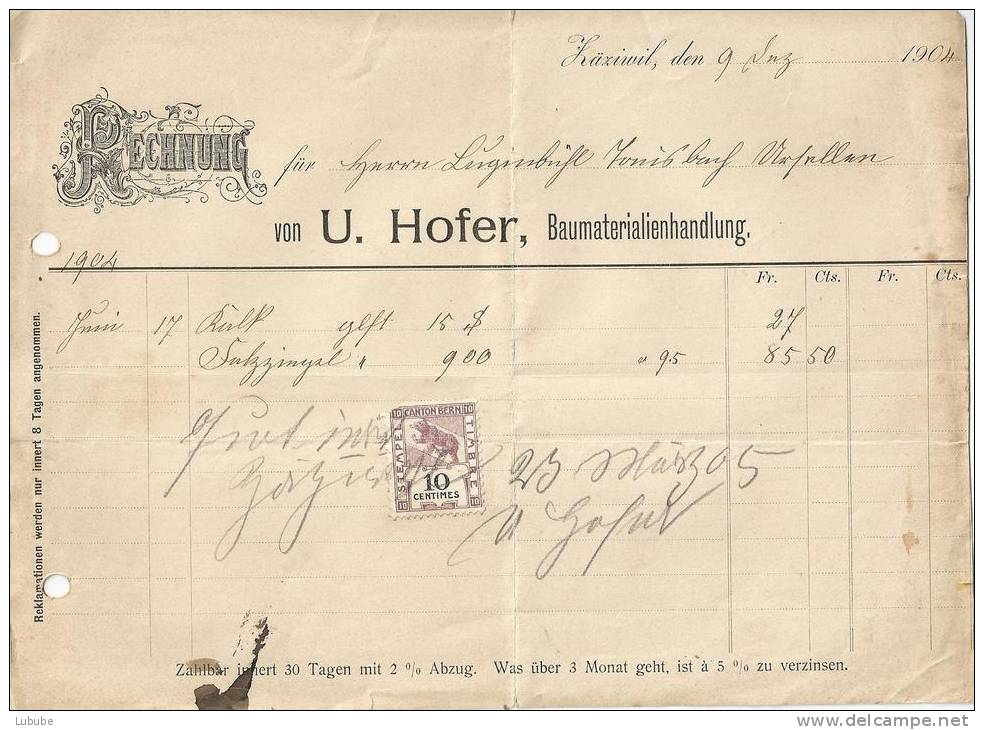 Zäziwil, den 9 Dez 1904
RECHNUNG für Herrn Luginbühl Tonisbach Ursellen
von U. Hofer, Baumaterialienhandlung.
1904
Fr. Cts. Fr. Cts.
Juni 17 Kalk glft 15 27
Falzziegel " 900 " 9.5 85 50
CANTON BERN
STEMPEL
TIMBRE
10
CENTIMES
23 März 05
U Hofer
Reklamationen werden nur innert 8 Tagen angenommen.
Zahlbar innert 30 Tagen mit 2 % Abzug. Was über 3 Monat geht, ist à 5 % zu verzinsen.
Lubube
www.delcampe.net